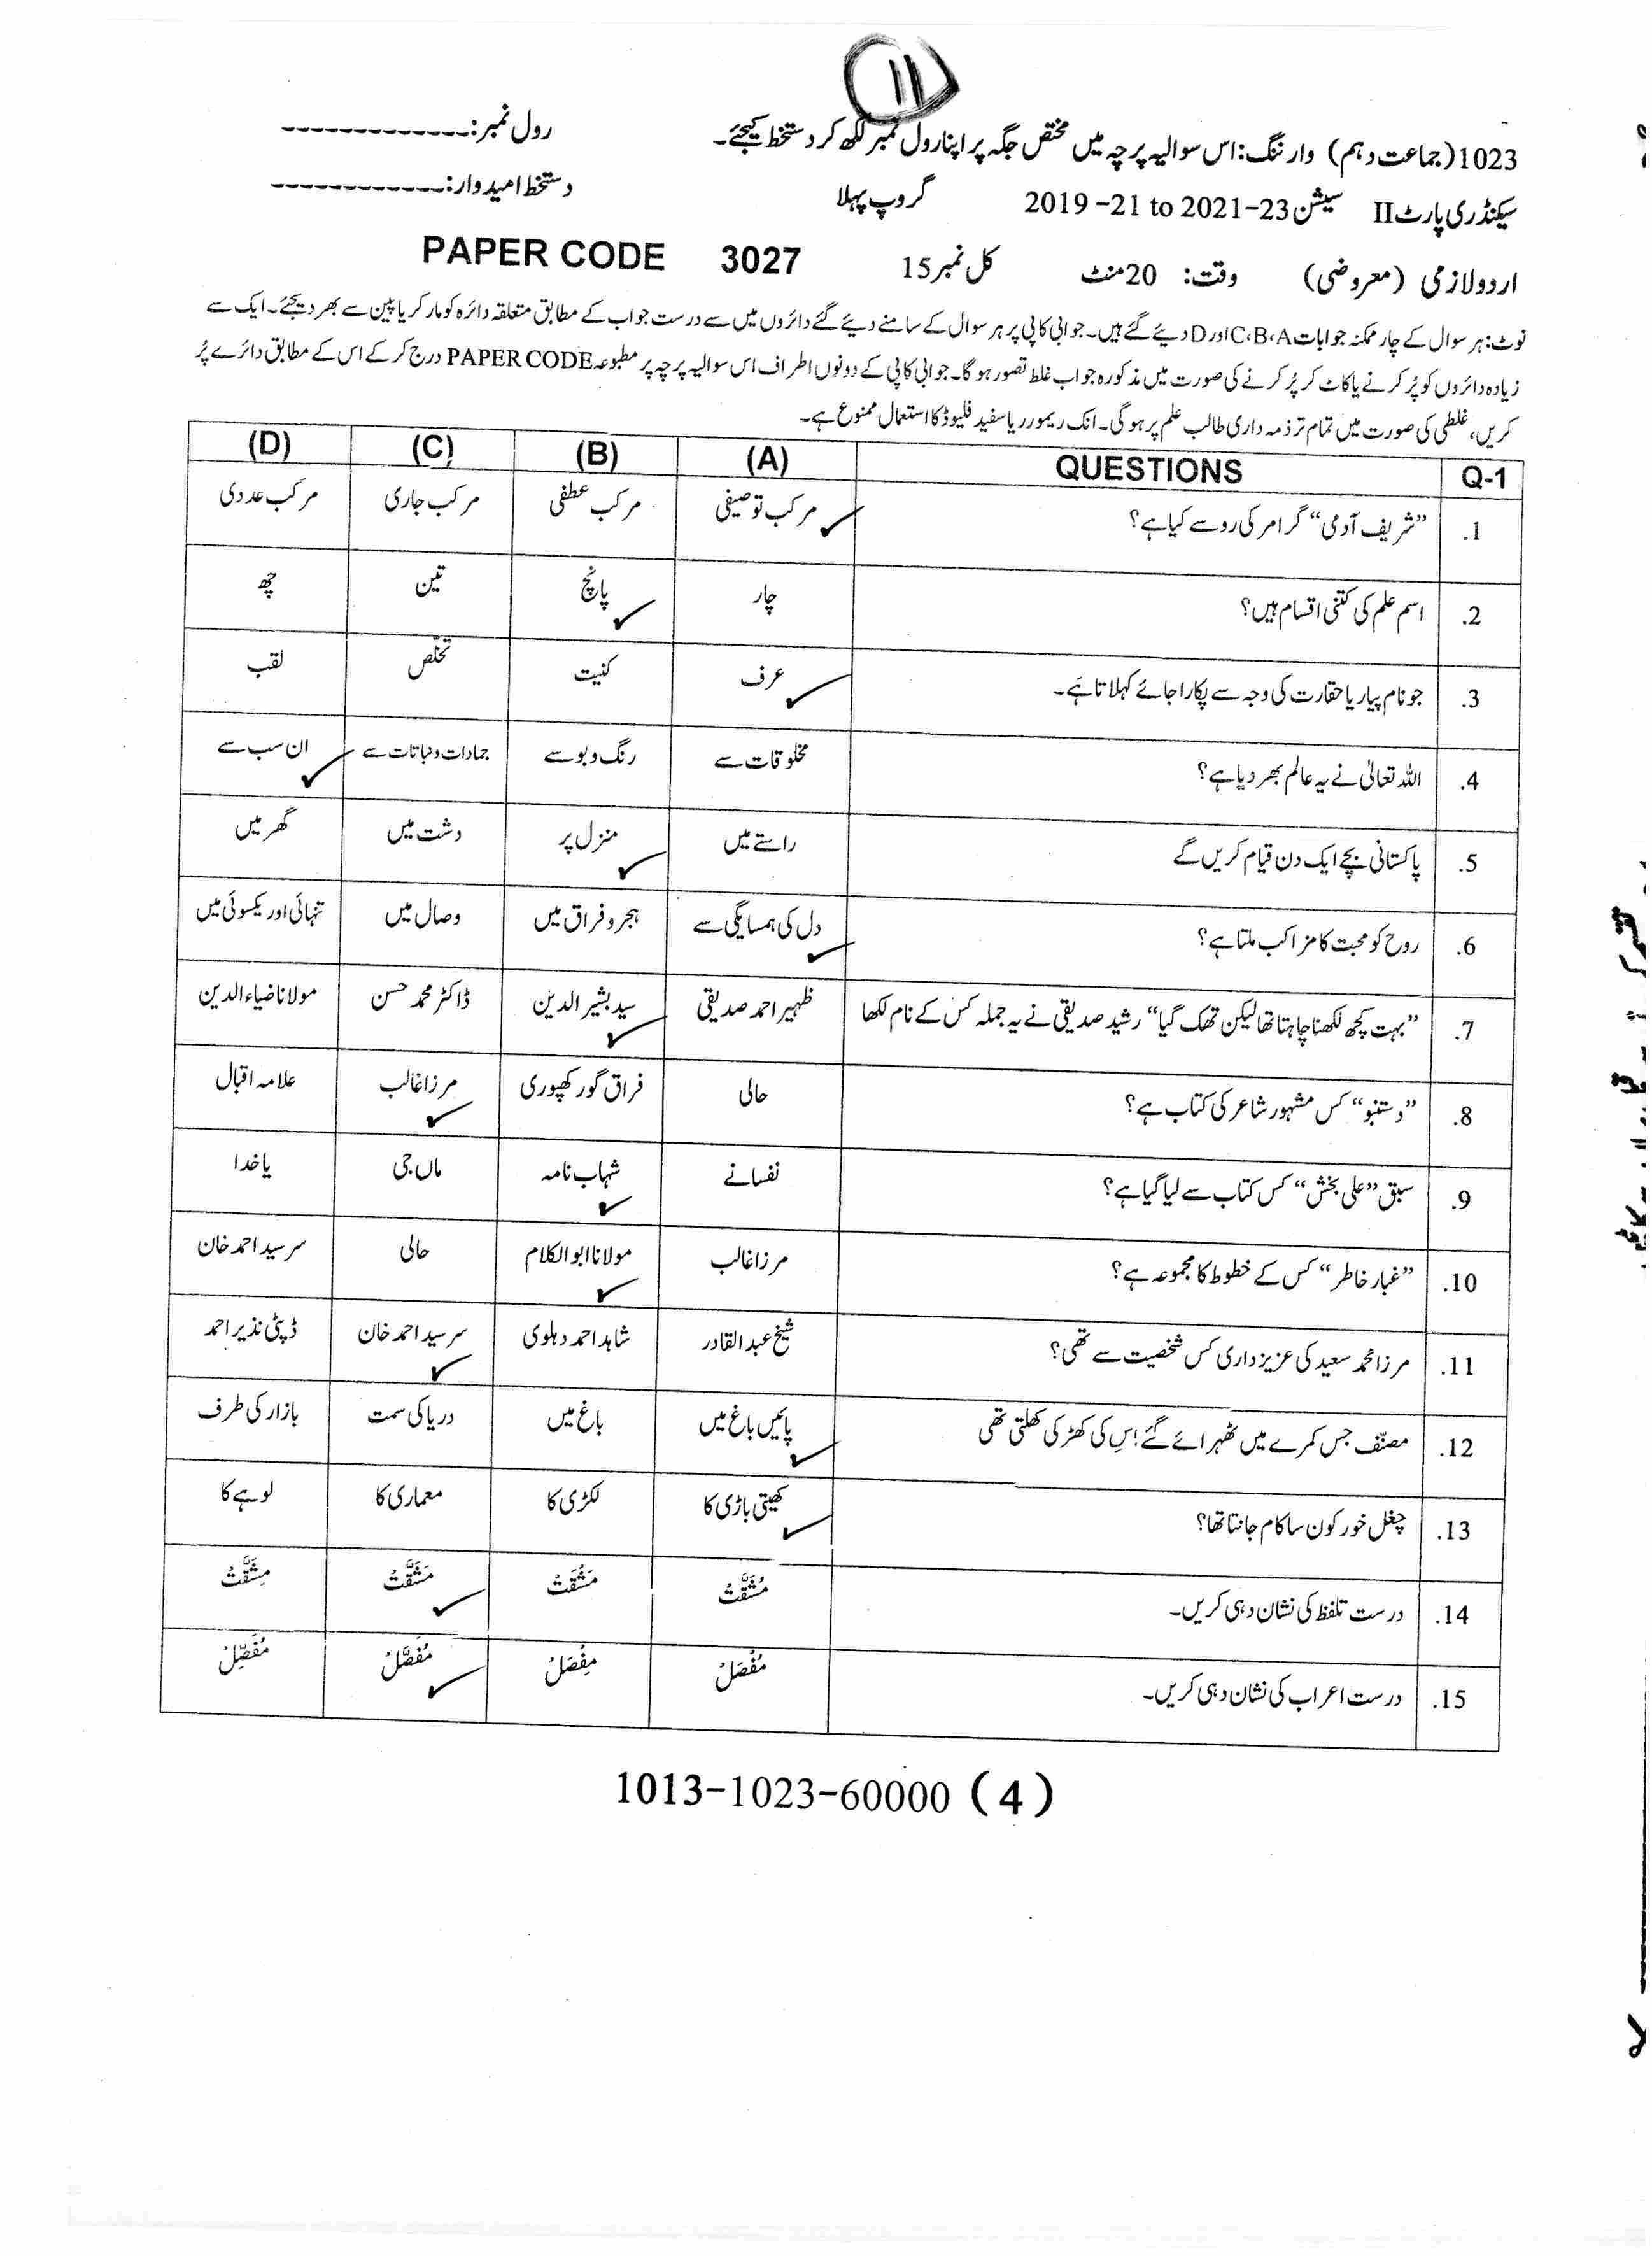 11
1023(جماعت دہم) وارننگ: اس سوالیہ پرچہ میں مختص جگہ پر اپنا رول نمبر لکھ کر دستخط کیجئے۔ رول نمبر:-------------
سیکنڈری پارٹ II سیشن 2019-21 to 2021-23 گروپ پہلا دستخط امیدوار:------------
اردو لازمی (معروضی) وقت: 20 منٹ کل نمبر 15 PAPER CODE 3027
نوٹ: ہر سوال کے چار ممکنہ جوابات C،B،A اور D دیئے گئے ہیں۔ جوابی کاپی پر ہر سوال کے سامنے دیئے گئے دائروں میں سے درست جواب کے مطابق متعلقہ دائرہ کو مارکر یا پین سے بھر دیجئے۔ ایک سے
زیادہ دائروں کو پُر کرنے یا کاٹ کر پُر کرنے کی صورت میں مذکورہ جواب غلط تصور ہو گا۔ جوابی کاپی کے دونوں اطراف اس سوالیہ پرچہ پر مطبوعہ PAPER CODE درج کر کے اس کے مطابق دائرے پُر
کریں، غلطی کی صورت میں تمام تر ذمہ داری طالب علم پر ہو گی۔ انک ریموور یا سفید فلیوڈ کا استعمال ممنوع ہے۔
Q-1 QUESTIONS (A) (B) (C) (D)
1. ”شریف آدمی“ گرامر کی رو سے کیا ہے؟ مرکب توصیفی مرکب عطفی مرکب جاری مرکب عددی
2. اسم علم کی کتنی اقسام ہیں؟ چار پانچ تین چھ
3. جو نام پیار یا حقارت کی وجہ سے پکارا جائے کہلاتا ہے۔ عرف کنیت تخلّص لقب
4. اللہ تعالیٰ نے یہ عالم بھر دیا ہے؟ مخلوقات سے رنگ و بو سے جمادات و نباتات سے ان سب سے
5. پاکستانی بچے ایک دن قیام کریں گے راستے میں منزل پر دشت میں گھر میں
6. روح کو محبت کا مزا کب ملتا ہے؟ دل کی ہمسایگی سے ہجر و فراق میں وصال میں تنہائی اور یکسوئی میں
7. ”بہت کچھ لکھنا چاہتا تھا لیکن تھک گیا“ رشید صدیقی نے یہ جملہ کس کے نام لکھا ظہیر احمد صدیقی سید بشیر الدین ڈاکٹر محمد حسن مولانا ضیاء الدین
8. ”دستنبو“ کس مشہور شاعر کی کتاب ہے؟ حالی فراق گورکھپوری مرزا غالب علامہ اقبال
9. سبق ”علی بخش“ کس کتاب سے لیا گیا ہے؟ نفسانے شہاب نامہ ماں جی یا خدا
10. ”غبار خاطر“ کس کے خطوط کا مجموعہ ہے؟ مرزا غالب مولانا ابو الکلام حالی سر سید احمد خان
11. مرزا محمد سعید کی عزیز داری کس شخصیت سے تھی؟ شیخ عبد القادر شاہد احمد دہلوی سر سید احمد خان ڈپٹی نذیر احمد
12. مصنّف جس کمرے میں ٹھہرائے گئے اِس کی کھڑکی کھلتی تھی پائیں باغ میں باغ میں دریا کی سمت بازار کی طرف
13. چغل خور کون سا کام جانتا تھا؟ کھیتی باڑی کا لکڑی کا معماری کا لوہے کا
14. درست تلفظ کی نشان دہی کریں۔ مُشَقَّتْ مَشُقَتْ مَشَقَّتْ مِشَقَّتْ
15. درست اعراب کی نشان دہی کریں۔ مُفْصَلْ مِفُصَلْ مُفَصَّلْ مُفَصِّلْ
1013-1023-60000 (4)